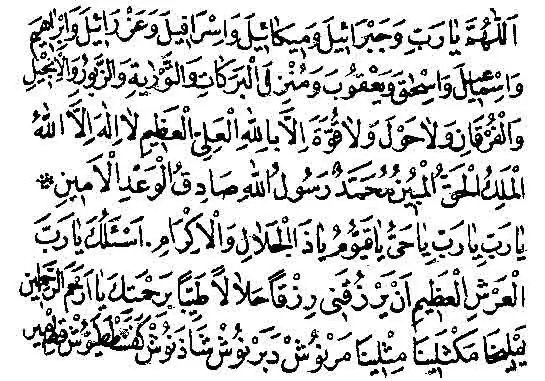 اَللّٰهُمَّ يَارَبِّ وَجَبْرَائِيلَ وَمِيكَائِيلَ وَاِسْرَافِيلَ وَعَزْرَائِيلَ وَاِبْرَاهِيمَ
وَاِسْمَاعِيلَ وَاِسْحٰقَ وَيَعْقُوبَ وَمُنْزِلَ الْبَرَكَاتِ وَالتَّوْرٰيةِ وَالزَّبُورِ وَالْاِنْجِيلِ
وَالْفُرْقَانِ وَلَاحَوْلَ وَلَا قُوَّةَ اِلَّا بِاللّٰهِ الْعَلِىِّ الْعَظِيمِ لَا اِلٰهَ اِلَّا اللّٰهُ
الْمَلِكُ الْحَقُّ الْمُبِينُ مُحَمَّدٌ رَسُولُ اللّٰهِ صَادِقُ الْوَعْدِ الْاَمِينِ *
يَارَبِّ يَارَبِّ يَاحَىُّ يَاقَيُّومُ يَاذَا الْجَلَالِ وَالْاِكْرَامِ . اَسْئَلُكَ يَارَبَّ
الْعَرْشِ الْعَظِيمِ اَنْ يَرْزُقَنِى رِزْقًا حَلَالًا طَيِّبًا بِرَحْمَتِكَ يَا اَرْحَمَ الرَّاحِمِينَ
يَمْلِيخَا مَكْثَلِينَا مِثْلِينَا مَرْنُوشْ دَبَرْنُوشْ شَاذَنُوشْ كَفَشْطَطَيُوشْ قِطْمِيرْ